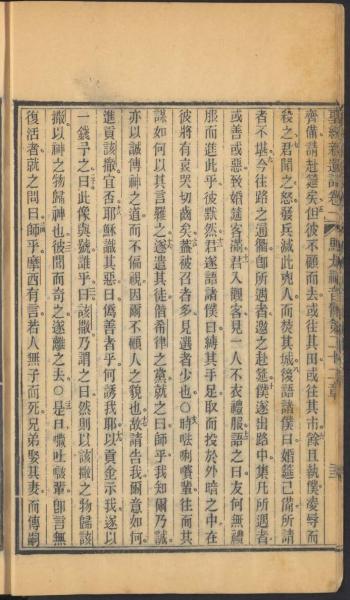 聖經新遺詔書卷一 馬太福音傳第二十二章
齊備請赴筵矣但彼不顧而去或往其田或往其市餘且執僕凌辱而
殺之君聞之怒發兵滅此兇人而焚其城後語諸僕曰婚筵已備所請
者不堪今往路之通衢卽所遇者邀之赴筵僕遂出路中集凡所遇者
或善或惡致婚筵客滿君入觀客見一人不衣禮服謂之曰友何無禮
服而進此乎彼默然君遂語諸僕曰縛其手足取而投於外暗之中在
彼將有哀哭切齒矣蓋被召者多見選者少也○時㗎唎嚽輩往而共
謀如何以其言羅之遂遣其徒偕希律之黨就之曰師乎我知爾乃誠
亦以誠傳神之道而不偏視因爾不顧人之貌也故請告我爾意如何
進貢該撒宜否耶穌識其惡曰僞善者乎何誘我耶以貢金示我遂以
一錢予之曰此像與號誰乎曰該撒乃謂之曰然則以該撒之物歸該
撒以神之物歸神也彼聞而奇之遂離之去○是日 吐 輩卽言無
復活者就之問曰師乎摩西有言若人無子而死兄弟娶其妻而傳嗣